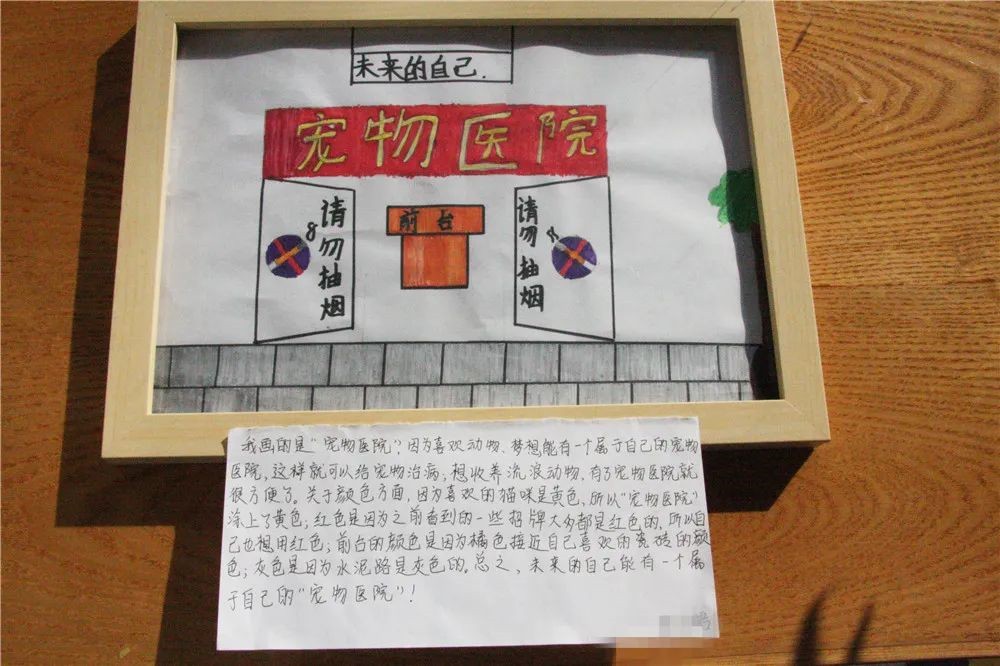 未来的自己.
宠物医院
请勿抽烟
前台
请勿抽烟
我画的是“宠物医院”?因为喜欢动物、梦想能有一个属于自己的宠物
医院,这样就可以给宠物治病;想收养流浪动物,有了宠物医院就
很方便了。关于颜色方面,因为喜欢的猫咪是黄色,所以“宠物医院”
涂上了黄色;红色是因为之前看到的一些招牌大多都是红色的,所以自
己也想用红色;前台的颜色是因为橘色接近自己喜欢的瓷砖的颜
色;灰色是因为水泥路是灰色的。总之,未来的自己能有一个属
于自己的“宠物医院”!